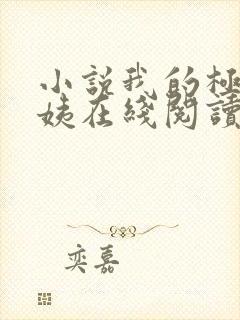 小說我的極
姨在綫閱讀
奕嘉